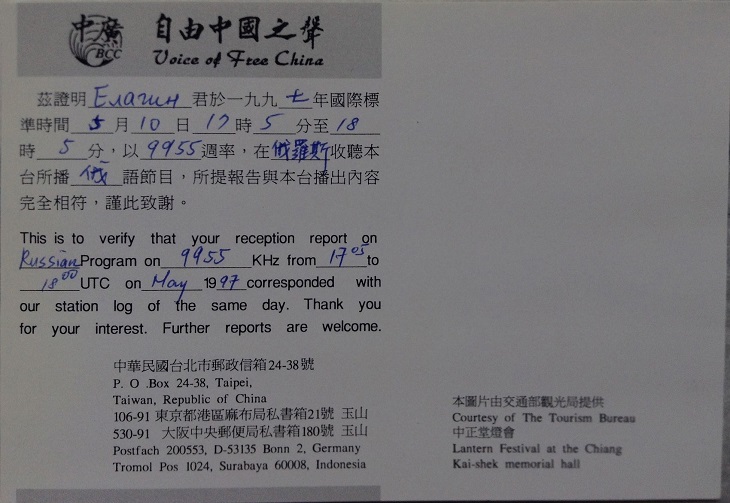 中廣 自由中國之聲
BCC Voice of Free China
茲證明 Елагин 君於一九九七年國際標
準時間 5 月 10 日 17 時 5 分至 18
時 5 分，以 9955 週率，在俄羅斯收聽本
台所播 俄 語節目，所提報告與本台播出內容
完全相符，謹此致謝。
This is to verify that your reception report on
Russian Program on 9955 KHz from 17 05 to
18 00 UTC on May 1997 corresponded with
our station log of the same day. Thank you
for your interest. Further reports are welcome.
中華民國台北市郵政信箱24-38號
P. O .Box 24-38, Taipei,
Taiwan, Republic of China
106-91 東京都港區麻布局私書箱21號 玉山
530-91 大阪中央郵便局私書箱180號 玉山
Postfach 200553, D-53135 Bonn 2, Germany
Tromol Pos 1024, Surabaya 60008, Indonesia
本圖片由交通部觀光局提供
Courtesy of The Tourism Bureau
中正堂燈會
Lantern Festival at the Chiang
Kai-shek memorial hall